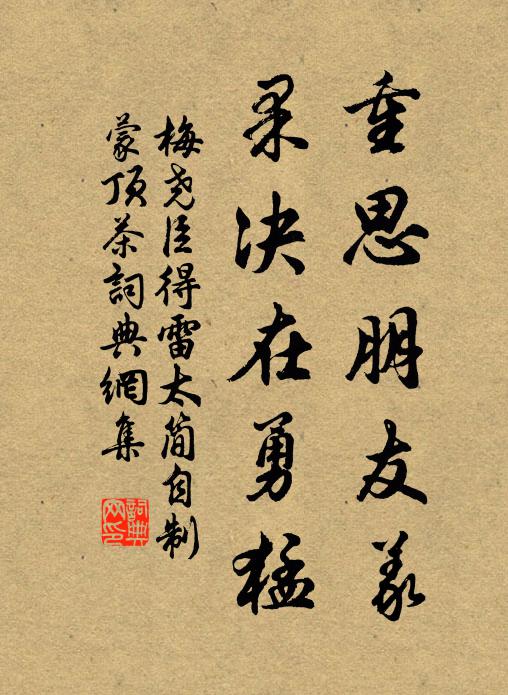 重思朋友義
果決在勇猛
梅堯臣得雷太簡自制
蒙頂茶詞典網集
詞典網印